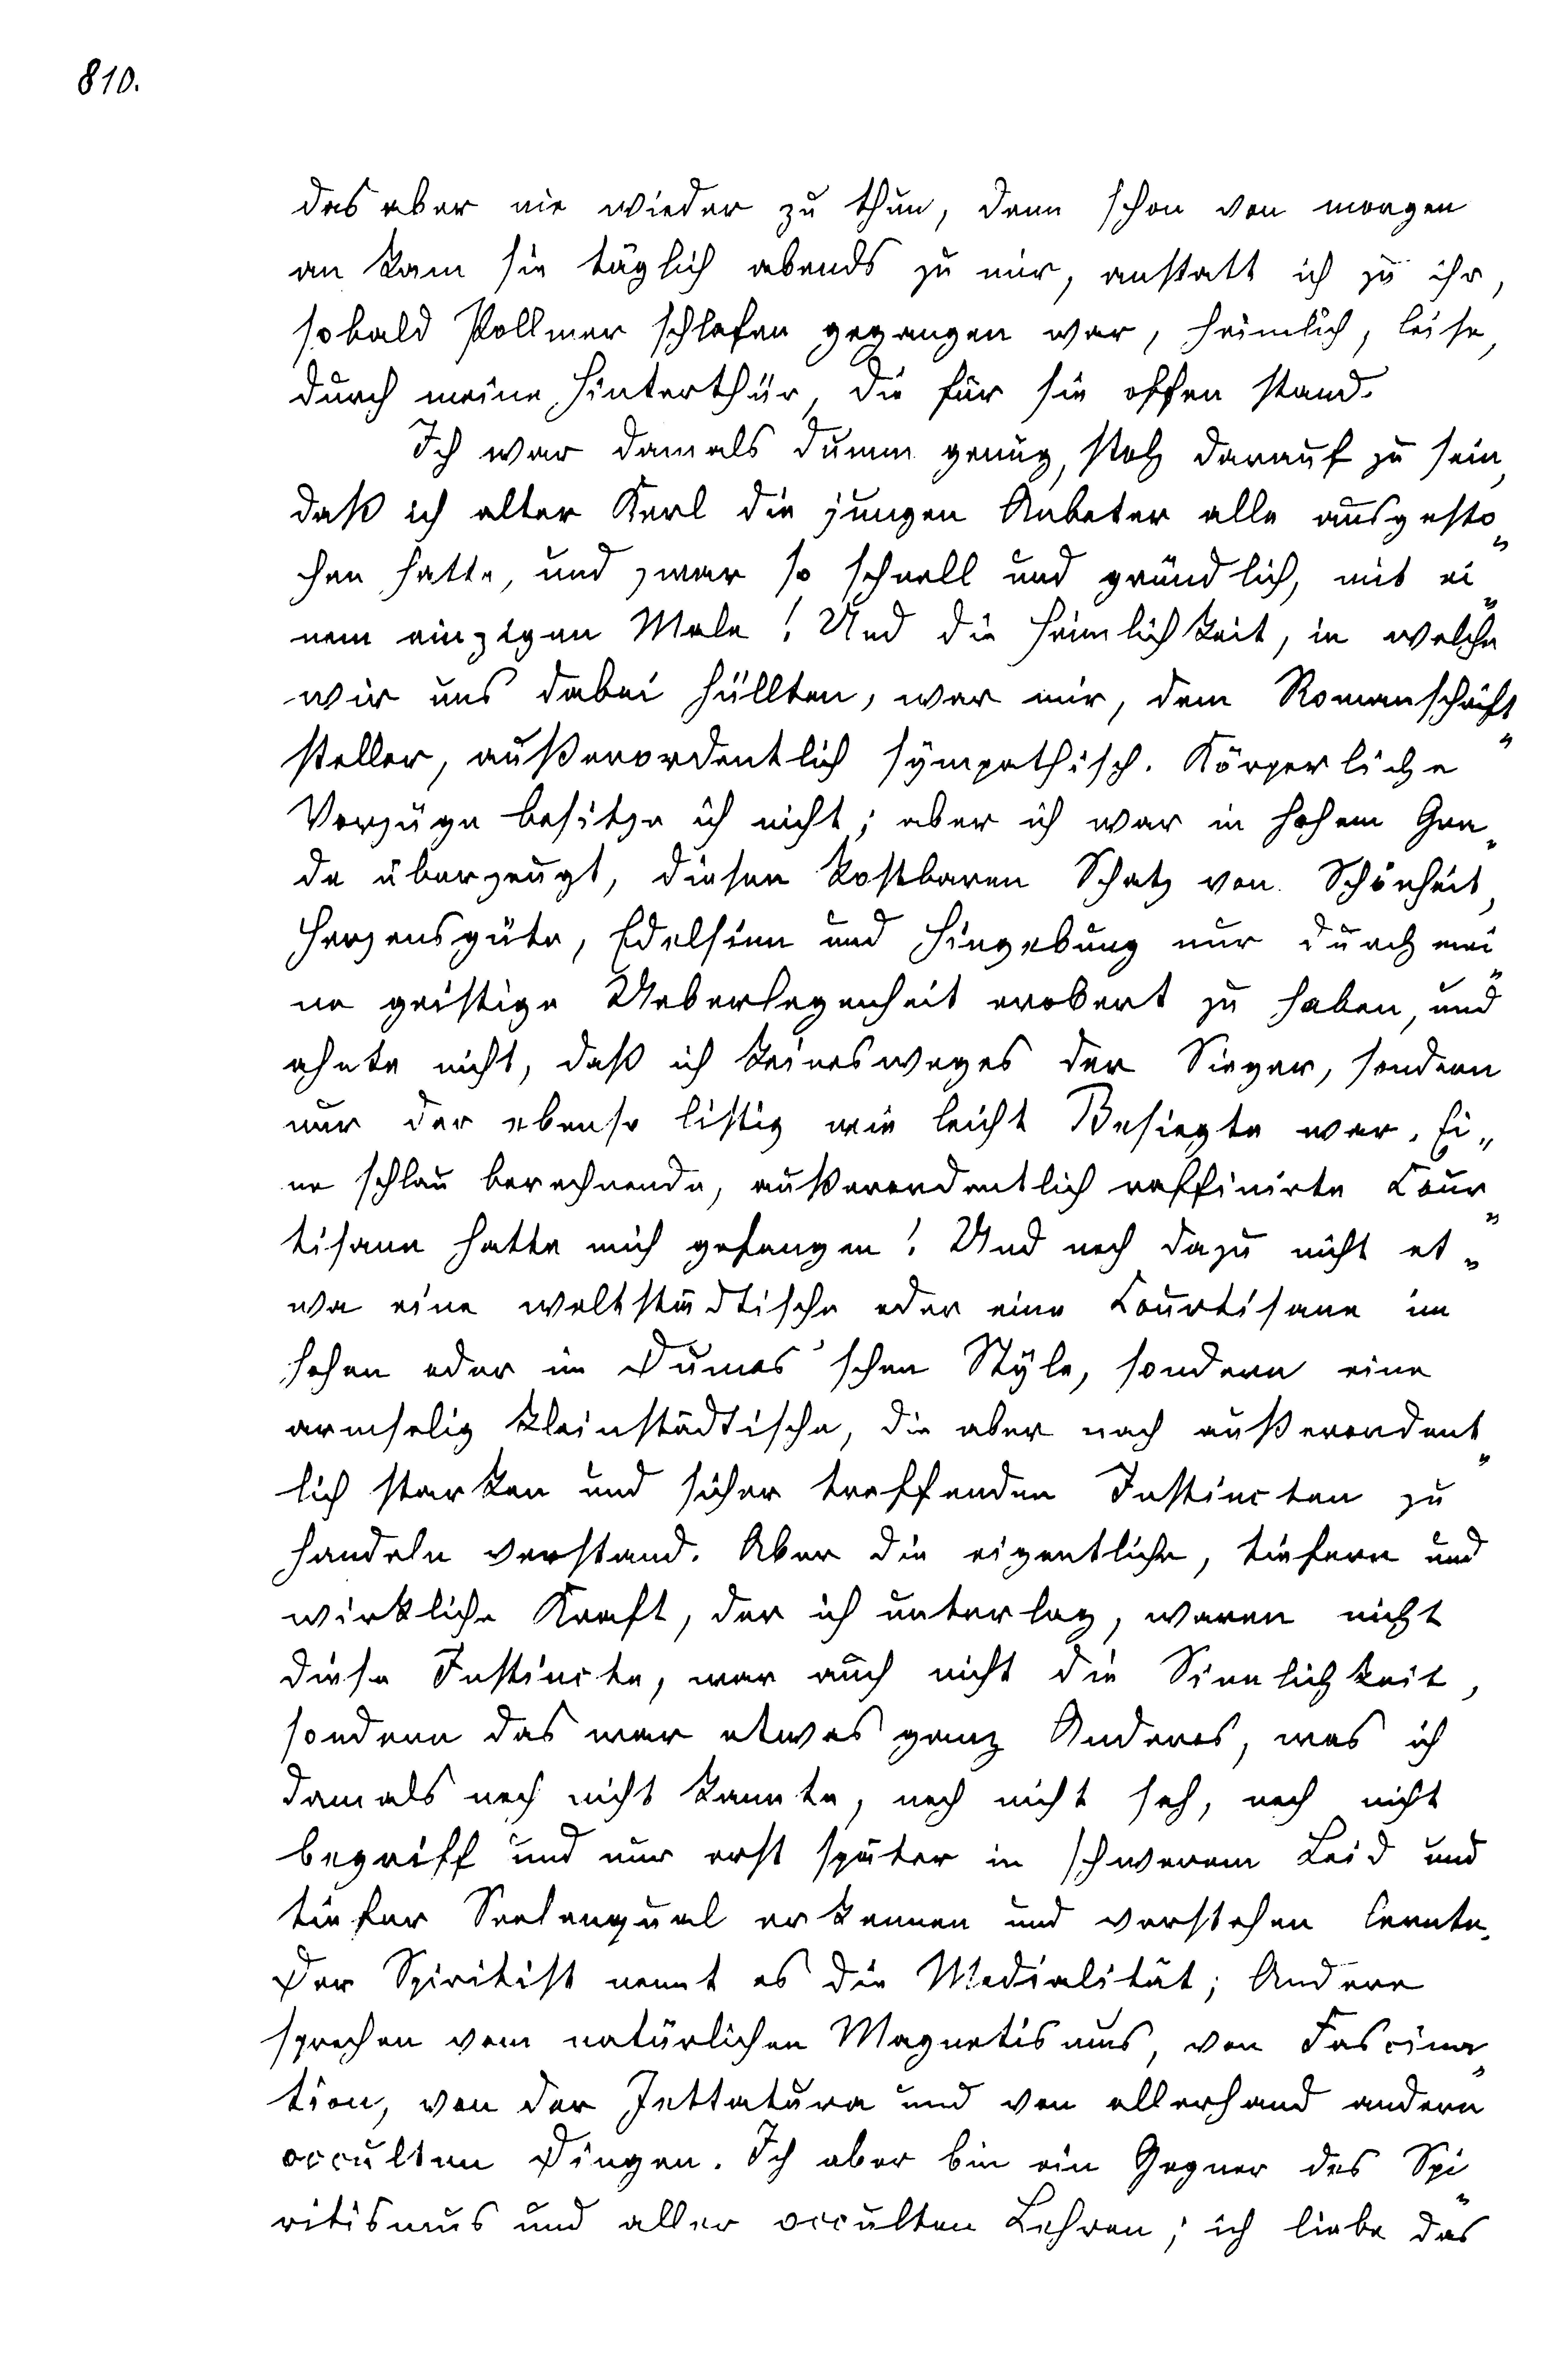 810.
das aber nie wieder zu thun, denn schon von morgen
an kam sie täglich abends zu mir, anstatt ich zu ihr,
sobald Pollmer schlafen gegangen war, heimlich, leise,
durch meine Hinterthür, die für sie offen stand.
Ich war damals dumm genug, stolz darauf zu sein,
daß ich alter Kerl die jungen Anbeter alle ausgesto„
chen hatte, und zwar so schnell und gründlich, mit ei„
nem einzigen Male! Und die Heimlichkeit, in welche
wir uns dabei hüllten, war mir, dem Romanschrift„
steller, außerordentlich sympathisch. Körperliche
Vorzüge besitze ich nicht; aber ich war in hohem Gra„
de überzeugt, diesen kostbaren Schatz von Schönheit,
Herzensgüte, Edelsinn und Hingebung nur durch mei„
ne geistige Ueberlegenheit erobert zu haben, und
ahnte nicht, daß ich keinesweges der Sieger, sondern
nur der ebenso listig wie leicht Besiegte war. Ei„
ne schlau berechnende, außerordentlich raffinirte Cour„
tisane hatte mich gefangen! Und noch dazu nicht et„
wa eine weltstädtische oder eine Courtisane im
hohen oder im Dumas'schen Style, sondern eine
armselig kleinstädtische, die aber nach außerordent„
lich starken und sicher treffenden Instincten zu
handeln verstand. Aber die eigentliche, tiefere und
wirkliche Kraft, der ich unterlag, waren nicht
diese Instincte, war auch nicht die Sinnlichkeit,
sondern das war etwas ganz Anderes, was ich
damals noch nicht kannte, noch nicht sah, noch nicht
begriff und nur erst später in schwerem Leid und
tiefer Seelenqual erkennen und verstehen lernte.
Der Spiritist nennt es die Medialität; Andere
sprechen vom natürlichen Magnetismus, von Fascina„
tion, von der Jettatura und von allerhand andern
occulten Dingen. Ich aber bin ein Gegner des Spi„
ritismus und aller occulten Lehren; ich liebe das